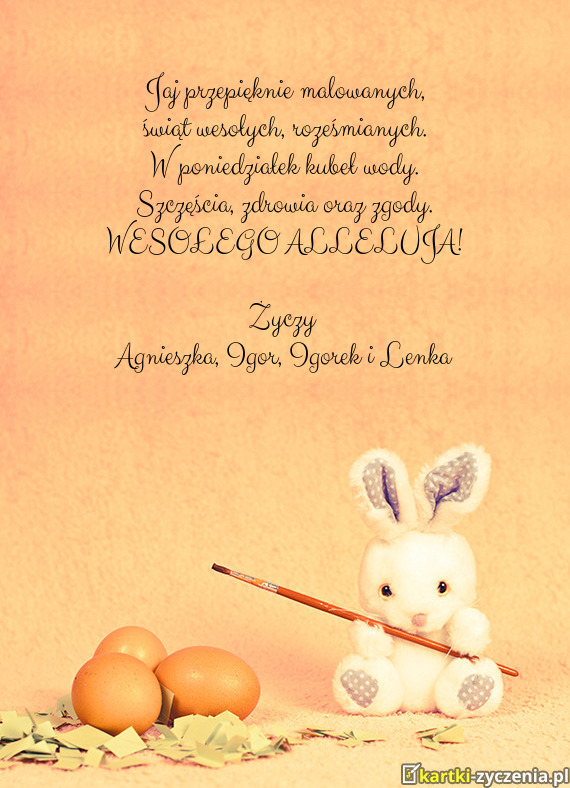 Jaj przepięknie malowanych,
świąt wesołych, roześmianych.
W poniedziałek kubeł wody.
Szczęścia, zdrowia oraz zgody.
WESOŁEGO ALLELUJA!
Życzy
Agnieszka, Igor, Igorek i Lenka
kartki-zyczenia.pl